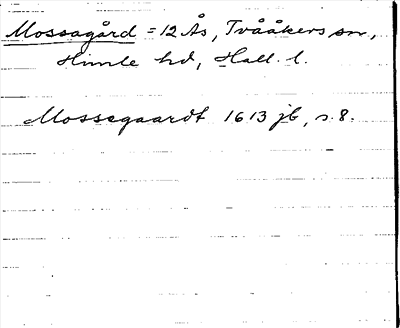 Mossagård = 12 Ås, Tvååkers sn,
Himle hd, Hall. l.
Mossegaardt 1613 jb, s. 8.